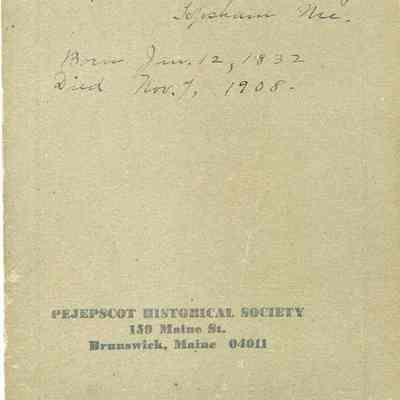 Topsham Me.
Born Jun. 12, 1832
Died Nov. 7, 1908.
PEJEPSCOT HISTORICAL SOCIETY
159 Maine St.
Brunswick, Maine 04011